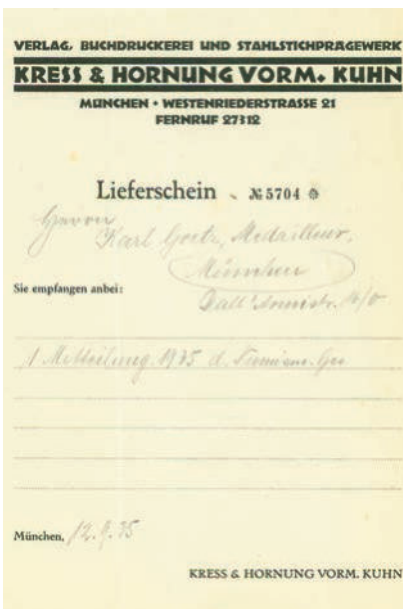 VERLAG, BUCHDRUCKEREI UND STAHLSTICHPRÄGEWERK
KRESS & HORNUNG VORM. KUHN
MÜNCHEN • WESTENRIEDERSTRASSE 21
FERNRUF 27312
Lieferschein № 5704
Herrn
Karl Goetz, Medailleur,
München
Sie empfangen anbei:
Dall'Armistr.
1 Mitteilung 1935 d.
München, 12.9.35
KRESS & HORNUNG VORM. KUHN